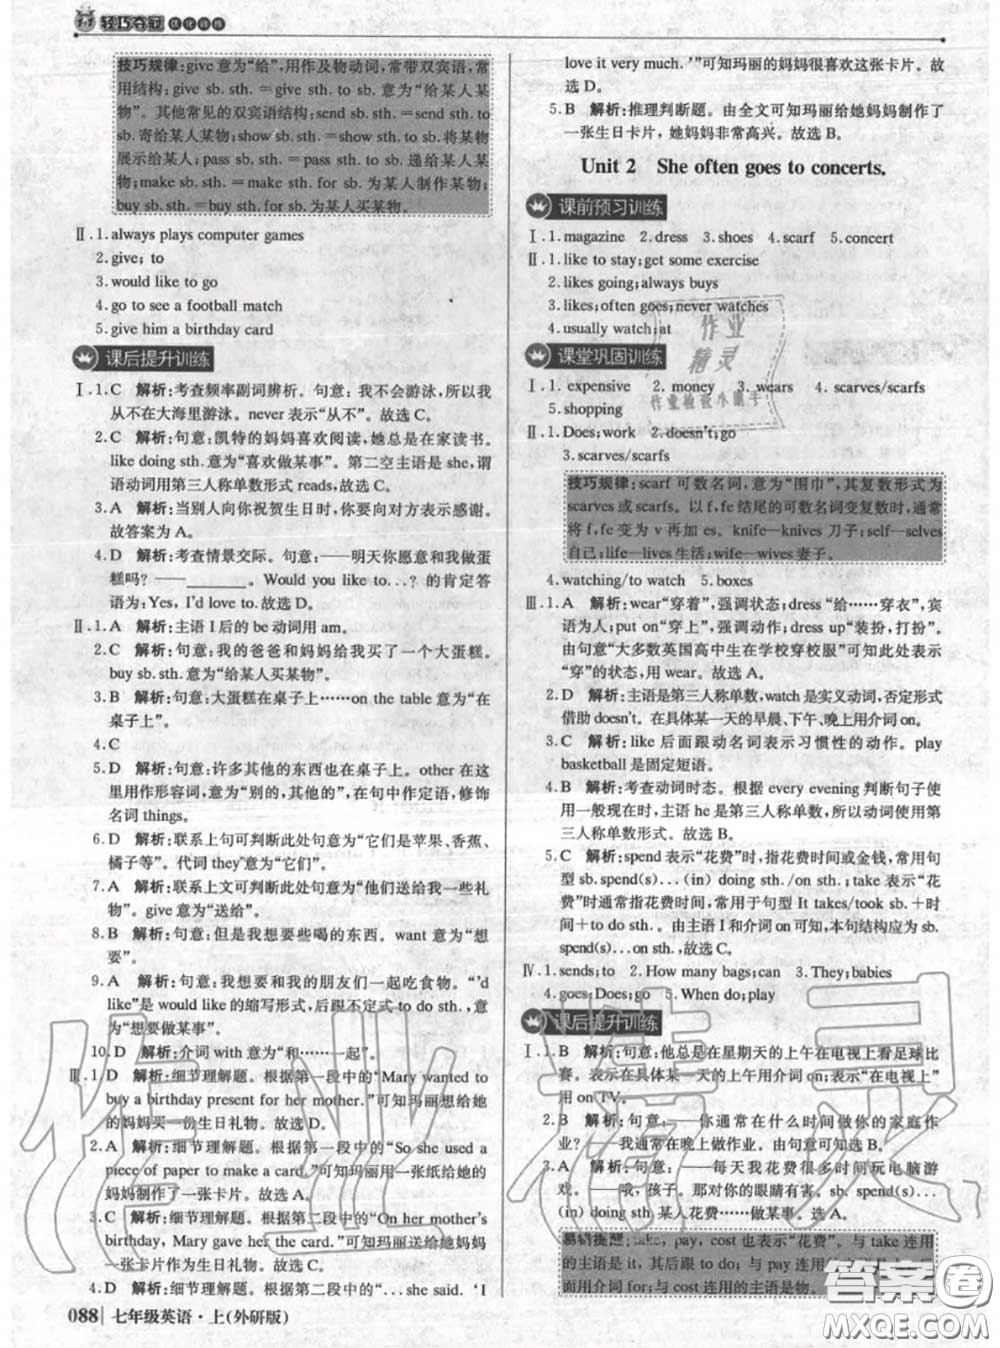 轻巧夺冠 优化训练
技巧规律:give 意为“给”,用作及物动词,常带双宾语,常
用结构:give sb. sth. = give sth. to sb. 意为“给某人某
物”。其他常见的双宾语结构:send sb. sth. = send sth. to
sb. 寄给某人某物;show sb. sth. =show sth. to sb.将某物
展示给某人;pass sb. sth. = pass sth. to sb. 递给某人某
物;make sb. sth. = make sth. for sb.为某人制作某物;
buy sb. sth. =buy sth. for sb.为某人买某物。
Ⅱ.1. always plays computer games
2. give; to
3. would like to go
4. go to see a football match
5. give him a birthday card
课后提升训练
Ⅰ.1.C 解析:考查频率副词辨析。句意:我不会游泳,所以我
从不在大海里游泳。never 表示“从不”。故选 C。
2.C 解析:句意:凯特的妈妈喜欢阅读,她总是在家读书。
like doing sth. 意为“喜欢做某事”。第二空主语是 she,谓
语动词用第三人称单数形式 reads,故选 C。
3.A 解析:当别人向你祝贺生日时,你要向对方表示感谢。
故答案为 A。
4.D 解析:考查情景交际。句意:——明天你愿意和我做蛋
糕吗? ——________。Would you like to...? 的肯定答
语为:Yes, I'd love to. 故选 D。
Ⅱ.1.A 解析:主语 I 后的 be 动词用 am。
2.C 解析:句意:我的爸爸和妈妈给我买了一个大蛋糕。
buy sb. sth. 意为“给某人买某物”。
3.B 解析:句意:大蛋糕在桌子上……on the table 意为“在
桌子上”。
4.C
5.D 解析:句意:许多其他的东西也在桌子上。other 在这
里用作形容词,意为“别的,其他的”,在句中作定语,修饰
名词 things。
6.D 解析:联系上句可判断此处句意为“它们是苹果、香蕉、
橘子等”。代词 they 意为“它们”。
7.A 解析:联系上文可判断此处句意为“他们送给我一些礼
物”。give 意为“送给”。
8.B 解析:句意:但是我想要些喝的东西。want 意为“想
要”。
9.A 解析:句意:我想要和我的朋友们一起吃食物。“'d
like”是 would like 的缩写形式,后跟不定式 to do sth.,意
为“想要做某事”。
10.D 解析:介词 with 意为“和……一起”。
Ⅲ.1.D 解析:细节理解题。根据第一段中的“Mary wanted to
buy a birthday present for her mother.”可知玛丽想给她
的妈妈买一份生日礼物。故选 D。
2.A 解析:细节理解题。根据第一段中的“So she used a
piece of paper to make a card.”可知玛丽用一张纸给她的
妈妈制作了一张卡片。故选 A。
3.C 解析:细节理解题。根据第二段中的“On her mother's
birthday, Mary gave her the card.”可知玛丽送给她妈妈
一张卡片作为生日礼物。故选 C。
4.D 解析:细节理解题。根据第二段中的“...she said. ‘I
088 七年级英语·上(外研版)
love it very much.’”可知玛丽的妈妈很喜欢这张卡片。故
选 D。
5.B 解析:推理判断题。由全文可知玛丽给她妈妈制作了
一张生日卡片,她妈妈非常高兴。故选 B。
Unit 2 She often goes to concerts.
课前预习训练
Ⅰ.1. magazine 2. dress 3. shoes 4. scarf 5. concert
Ⅱ.1. like to stay; get some exercise
2. likes going; always buys
3. likes; often goes; never watches
4. usually watch; at
课堂巩固训练
Ⅰ.1. expensive 2. money 3. wears 4. scarves/scarfs
5. shopping
Ⅱ.1. Does; work 2. doesn't; go
3. scarves/scarfs
技巧规律:scarf 可数名词,意为“围巾”,其复数形式为
scarves 或 scarfs。以 f,fe 结尾的可数名词变复数时,通常
将 f,fe 变为 v 再加 es。knife—knives 刀子;self—selves
自己;life—lives 生活;wife—wives 妻子。
4. watching/to watch 5. boxes
Ⅲ.1.A 解析:wear“穿着”,强调状态;dress “给……穿衣”,宾
语为人;put on“穿上”,强调动作;dress up“装扮,打扮”。
由句意“大多数英国高中生在学校穿校服”可知此处表示
“穿”的状态,用 wear。故选 A。
2.D 解析:主语是第三人称单数,watch 是实义动词,否定形式
借助 doesn't。在具体某一天的早晨、下午、晚上用介词 on。
3.C 解析:like 后面跟动名词表示习惯性的动作。play
basketball 是固定短语。
4.B 解析:考查动词时态。根据 every evening 判断句子使
用一般现在时,主语 he 是第三人称单数,所以动词使用第
三人称单数形式。故选 B。
5.C 解析:spend 表示“花费”时,指花费时间或金钱,常用句
型 sb. spend(s)... (in) doing sth. /on sth.;take 表示“花
费”时通常指花费时间,常用于句型 It takes/took sb. +
时间+to do sth.。由主语 I 和介词 on 可知,本句结构应为 sb.
spend(s)...on sth.,故选 C。
Ⅳ.1. sends; to 2. How many bags; can 3. They; babies
4. goes; Does; go 5. When do; play
课后提升训练
Ⅰ.1.B 解析:句意:他总是在星期天的上午在电视上看足球比
赛。表示在具体某一天的上午用介词 on;表示“在电视上”
用 on TV。
2.B 解析:句意:——你通常在什么时间做你的家庭作
业? ——我通常在晚上做作业。由句意可知选 B。
3.A 解析:句意:——每天我花费很多时间玩电脑游
戏。——哦,孩子。那对你的眼睛有害。sb. spend(s)...
(in) doing sth.某人花费……做某事。故选 A。
易错提醒:take, pay, cost 也表示“花费”。与 take 连用
的主语是 it,其后跟 to do;与 pay 连用
面用介词 for;与 cost 连用的主语是物。
作业
精灵
作业检查小助手
作业精灵
答案卷